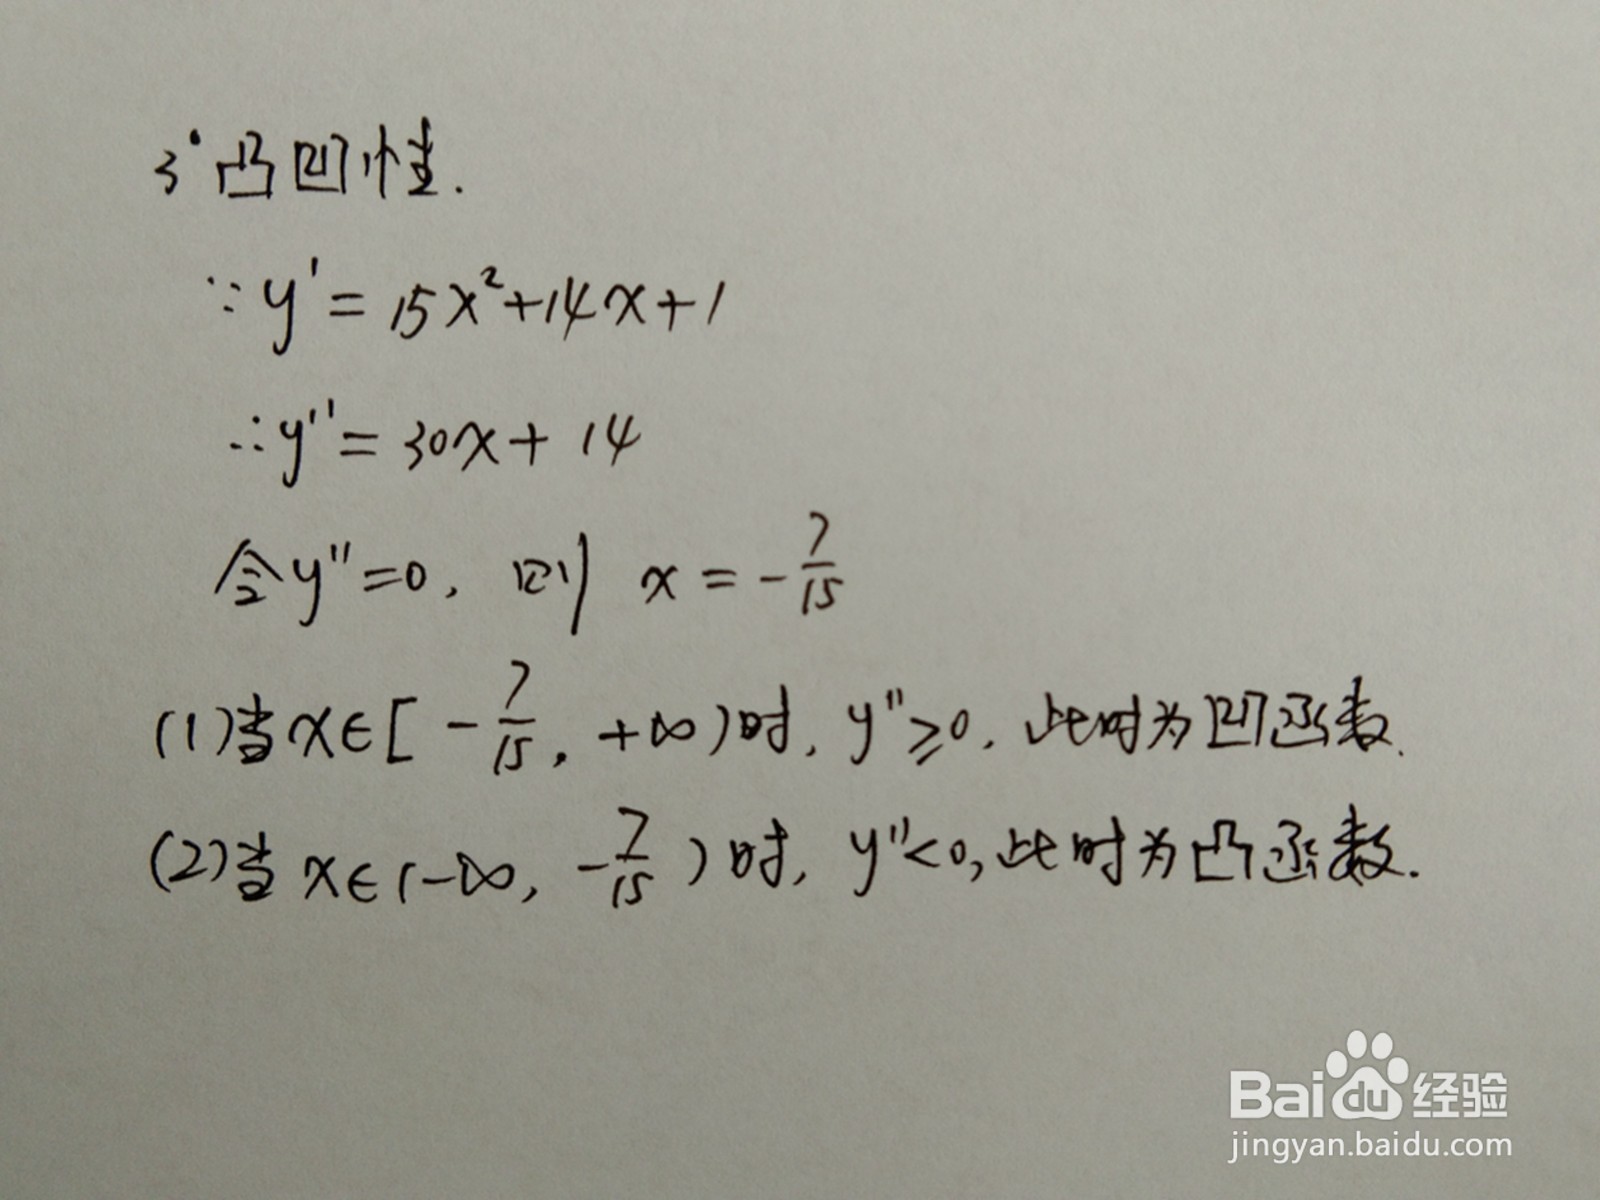 3°凸凹性.
∵y'=15x²+14x+1
∴y''=30x+14
令y''=0, 则 x=-7/15
(1)当x∈[-7/15, +∞)时, y''≥0, 此时为凹函数.
(2)当x∈(-∞, -7/15)时, y''<0, 此时为凸函数.
Bai du 经验
jingyan.baidu.com